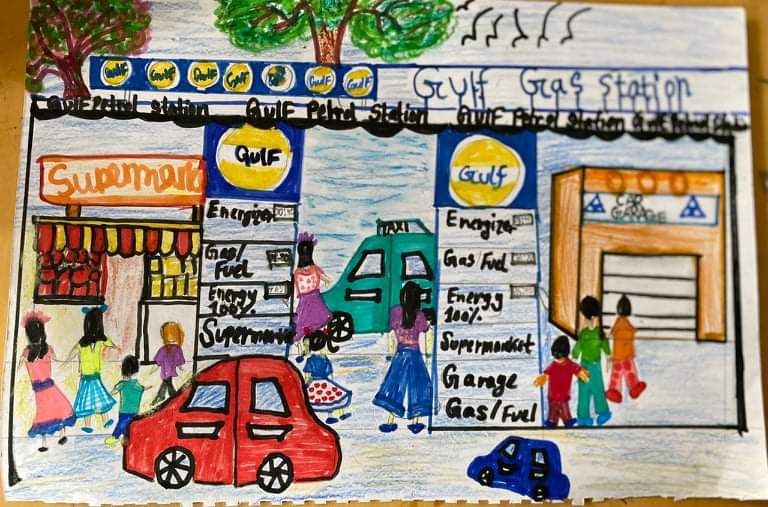 Gulf Gulf Gulf Gulf Gulf Gulf
Gulf Gas Station
Gulf Petrol Station Gulf Petrol Station Gulf Petrol Station
Gulf
Supermark
Energizer
Gas/
Fuel
Energy
100%
Supermark
TAXI
Gulf
Energizer
Gas/Fuel
Energy
100%
Supermarket
Garage
Gas/Fuel
CAR
GARAGE